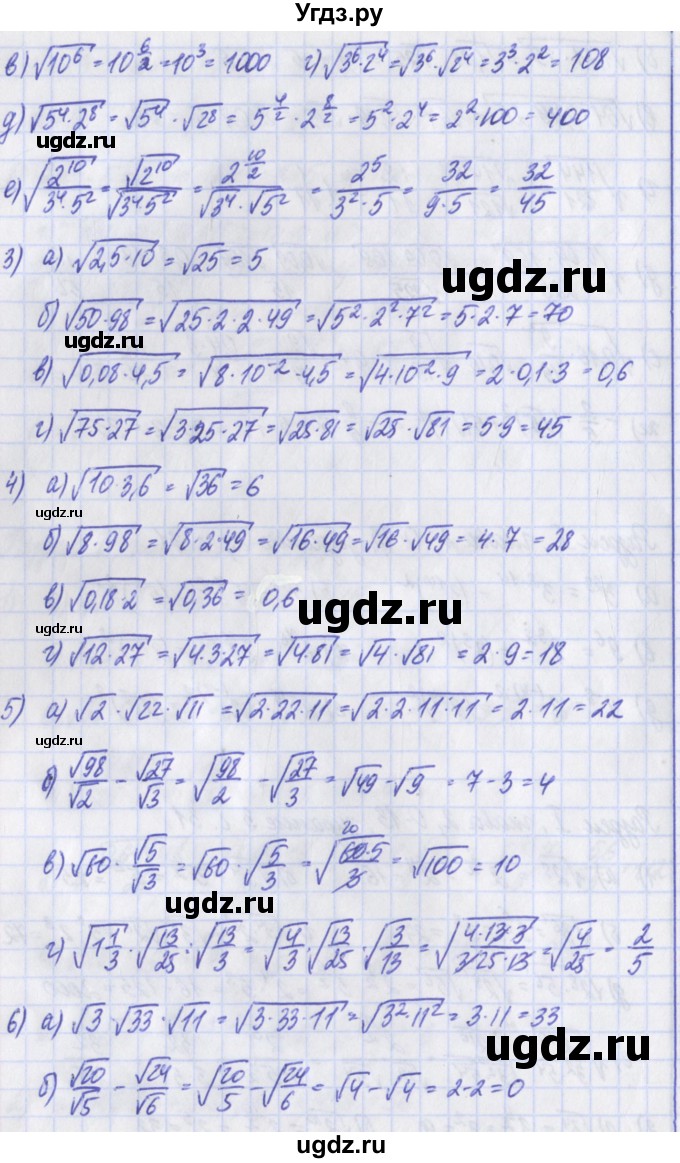 Угдз.ру
в) √10⁶ = 10^(6/2) = 10³ = 1000   г) √(3⁶·2⁴) = √3⁶·√2⁴ = 3³·2² = 108
д) √(5⁴·2⁸) = √5⁴ · √2⁸ = 5^(4/2) · 2^(8/2) = 5²·2⁴ = 2²·100 = 400
ugdz.ru
е) √(2¹⁰/(3⁴·5²)) = √2¹⁰/√(3⁴5²) = 2^(10/2)/(√3⁴·√5²) = 2⁵/(3²·5) = 32/(9·5) = 32/45
ugdz.ru
3) а) √(2,5·10) = √25 = 5
ugdz.ru
б) √(50·98) = √(25·2·2·49) = √(5²·2²·7²) = 5·2·7 = 70
ugdz.ru
в) √(0,08·4,5) = √(8·10⁻²·4,5) = √(4·10⁻²·9) = 2·0,1·3 = 0,6
г) √(75·27) = √(3·25·27) = √(25·81) = √25·√81 = 5·9 = 45
ugdz.ru
4) а) √(10·3,6) = √36 = 6
ugdz.ru
б) √(8·98) = √(8·2·49) = √(16·49) = √16·√49 = 4·7 = 28
в) √(0,18·2) = √0,36 = 0,6
ugdz.ru
ugdz.ru
г) √(12·27) = √(4·3·27) = √(4·81) = √4·√81 = 2·9 = 18
5) а) √2·√22·√11 = √(2·22·11) = √(2·2·11·11) = 2·11 = 22
ugdz.ru
б) √98/√2 - √27/√3 = √(98/2) - √(27/3) = √49 - √9 = 7 - 3 = 4
в) √60·√5/√3 = √60·√(5/3) = √(60·5/3) = √100 = 10
20
ugdz.ru
г) √(1 1/3)·√(13/25):√(13/3) = √(4/3)·√(13/25)·√(3/13) = √(4·13·3/(3·25·13)) = √(4/25) = 2/5
6) а) √3·√33·√11 = √(3·33·11) = √(3²·11²) = 3·11 = 33
ugdz.ru
б) √20/√5 - √24/√6 = √(20/5) - √(24/6) = √4 - √4 = 2-2 = 0
ugdz.ru